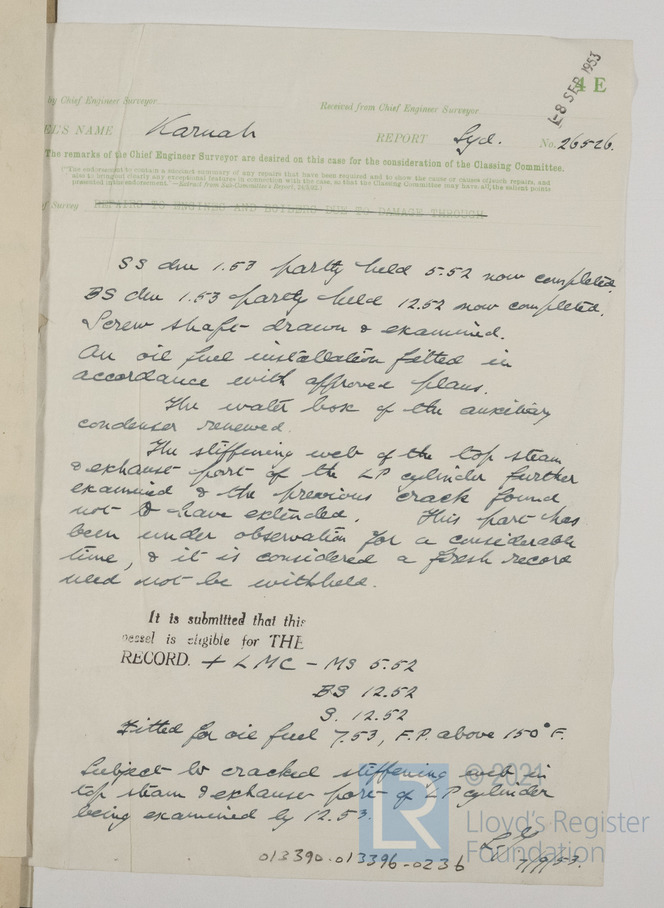 4 E
-8 SEP 1953
by Chief Engineer Surveyor
Received from Chief Engineer Surveyor
EL'S NAME Karuah REPORT Syd. No. 26526.
The remarks of the Chief Engineer Surveyor are desired on this case for the consideration of the Classing Committee.
("The endorsement to contain a succinct summary of any repairs that have been required and to show the cause or causes of such repairs, and
also to bring out clearly any exceptional features in connection with the case, so that the Classing Committee may have all the salient points
presented in the endorsement."—Extract from Sub-Committee's Report,
of Survey REPAIRS TO ENGINES AND BOILERS DUE TO DAMAGE THROUGH
SS due 1.53 partly held 5.52 now completed.
BS due 1.53 partly held 12.52 now completed.
Screw shaft drawn & examined.
An oil fuel installation fitted in
accordance with approved plans.
The water box of the auxiliary
condenser renewed.
The stiffening web of the top steam
& exhaust port of the LP cylinder further
examined & the previous crack found
not to have extended. This part has
been under observation for a considerable
time, & it is considered a fresh record
need not be withheld.
It is submitted that this
vessel is eligible for THE
RECORD. + LMC - MS 5.52
BS 12.52
S. 12.52
Fitted for oil fuel 7.53, F.P. above 150°F.
Subject to cracked stiffening web in
top steam & exhaust port of LP cylinder
being examined by 12.53.
7/9/53.
© 2021
LR
Lloyd's Register
Foundation
013390-013396-0236